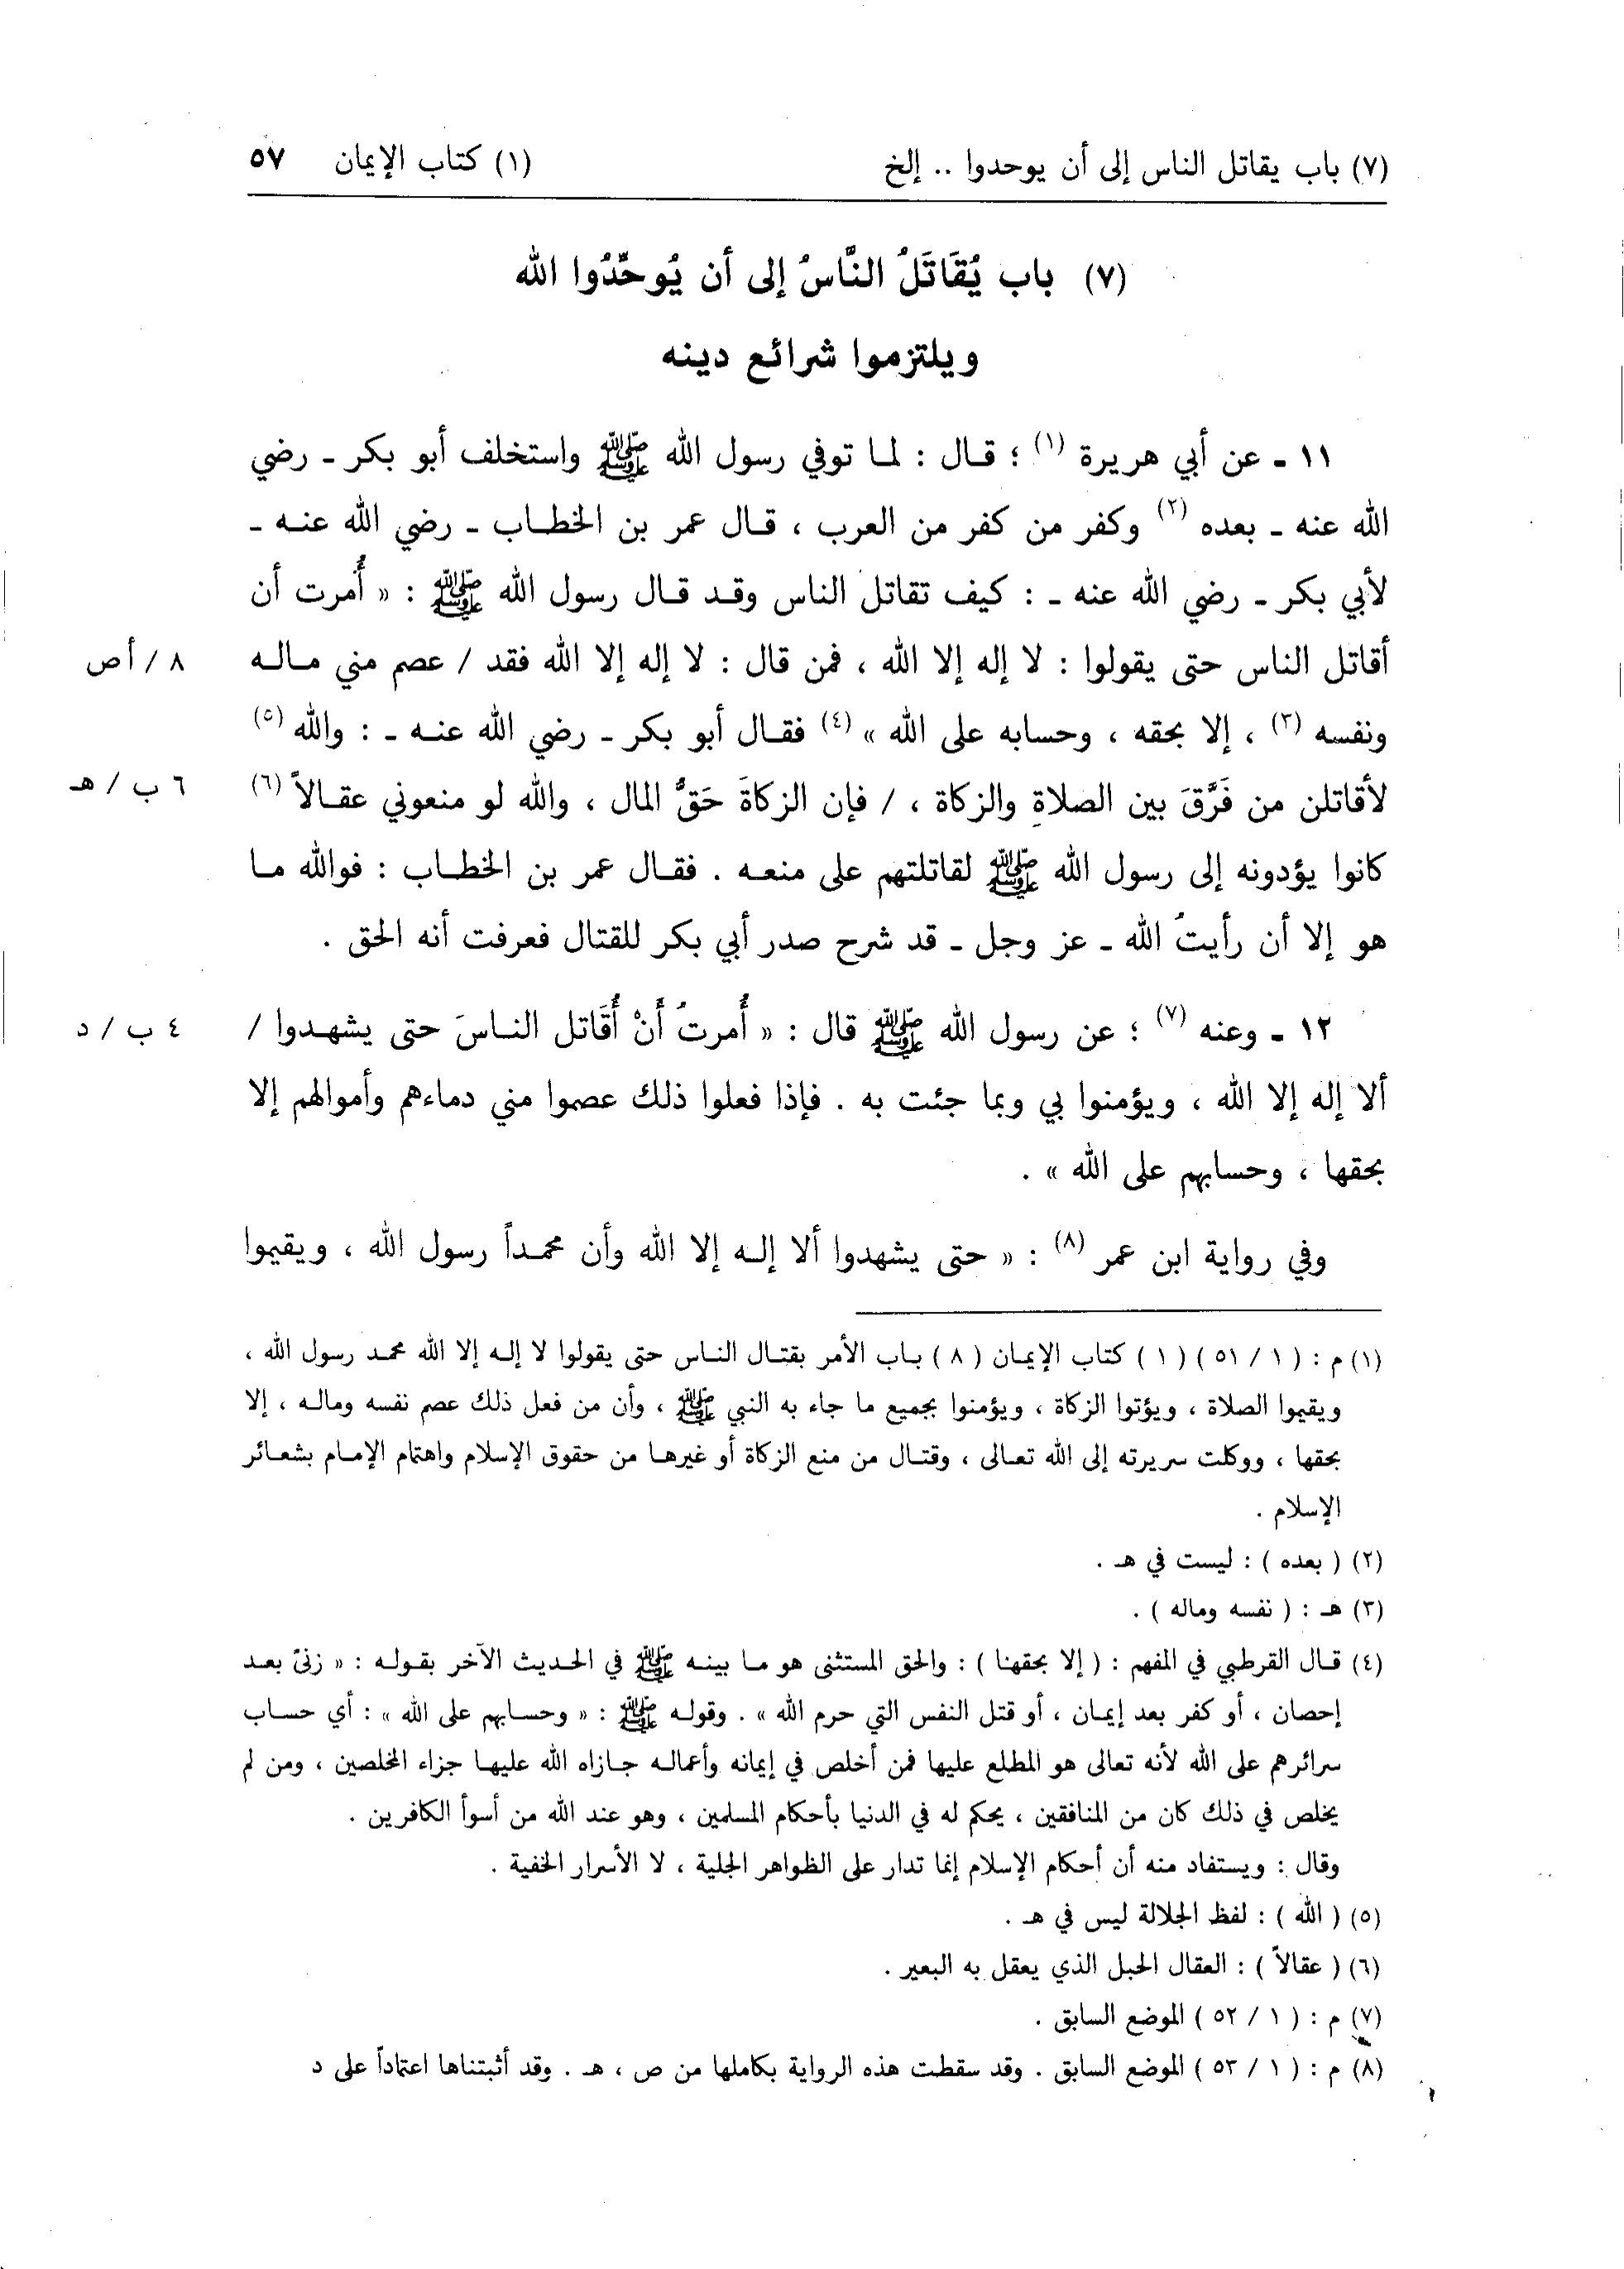 (٧) باب يقاتل الناس إلى أن يوحدوا .. إلخ (١) كتاب الإيمان ٥٧
(٧) باب يُقَاتَلُ النَّاسُ إلى أن يُوحِّدُوا الله
ويلتزموا شرائع دينه
١١ - عن أبي هريرة (١) ؛ قال : لما توفي رسول الله ﷺ واستخلف أبو بكر - رضي
الله عنه - بعده (٢) وكفر من كفر من العرب ، قال عمر بن الخطاب - رضي الله عنه -
لأبي بكر - رضي الله عنه - : كيف تقاتل الناس وقد قال رسول الله ﷺ : « أُمرت أن
أقاتل الناس حتى يقولوا : لا إله إلا الله ، فمن قال : لا إله إلا الله فقد / عصم مني ماله ٨ / أ ص
ونفسه (٣) ، إلا بحقه ، وحسابه على الله » (٤) فقال أبو بكر - رضي الله عنه - : والله (٥)
لأقاتلن من فَرَّقَ بين الصلاةِ والزكاة ، / فإن الزكاةَ حَقُّ المال ، والله لو منعوني عقالاً (٦) ٦ ب / هـ
كانوا يؤدونه إلى رسول الله ﷺ لقاتلتهم على منعه . فقال عمر بن الخطاب : فوالله ما
هو إلا أن رأيتُ الله - عز وجل - قد شرح صدر أبي بكر للقتال فعرفت أنه الحق .
١٢ - وعنه (٧) ؛ عن رسول الله ﷺ قال : « أُمرتُ أَنْ أُقَاتل الناسَ حتى يشهدوا / ٤ ب / د
ألا إله إلا الله ، ويؤمنوا بي وبما جئت به . فإذا فعلوا ذلك عصموا مني دماءهم وأموالهم إلا
بحقها ، وحسابهم على الله » .
وفي رواية ابن عمر (٨) : « حتى يشهدوا ألا إله إلا الله وأن محمداً رسول الله ، ويقيموا
(١) م : ( ١ / ٥١ ) ( ١ ) كتاب الإيمان ( ٨ ) باب الأمر بقتال الناس حتى يقولوا لا إله إلا الله محمد رسول الله ،
ويقيموا الصلاة ، ويؤتوا الزكاة ، ويؤمنوا بجميع ما جاء به النبي ﷺ ، وأن من فعل ذلك عصم نفسه وماله ، إلا
بحقها ، ووكلت سريرته إلى الله تعالى ، وقتال من منع الزكاة أو غيرها من حقوق الإسلام واهتمام الإمام بشعائر
الإسلام .
(٢) ( بعده ) : ليست في هـ .
(٣) هـ : ( نفسه وماله ) .
(٤) قال القرطبي في المفهم : ( إلا بحقها ) : والحق المستثنى هو ما بينه ﷺ في الحديث الآخر بقوله : « زنىً بعد
إحصان ، أو كفر بعد إيمان ، أو قتل النفس التي حرم الله » . وقوله ﷺ : « وحسابهم على الله » : أي حساب
سرائرهم على الله لأنه تعالى هو المطلع عليها فمن أخلص في إيمانه وأعماله جازاه الله عليها جزاء المخلصين ، ومن لم
يخلص في ذلك كان من المنافقين ، يحكم له في الدنيا بأحكام المسلمين ، وهو عند الله من أسوأ الكافرين .
وقال : ويستفاد منه أن أحكام الإسلام إنما تدار على الظواهر الجلية ، لا الأسرار الخفية .
(٥) ( الله ) : لفظ الجلالة ليس في هـ .
(٦) ( عقالاً ) : العقال الحبل الذي يعقل به البعير .
(٧) م : ( ١ / ٥٢ ) الموضع السابق .
(٨) م : ( ١ / ٥٣ ) الموضع السابق . وقد سقطت هذه الرواية بكاملها من ص ، هـ . وقد أثبتناها اعتماداً على د